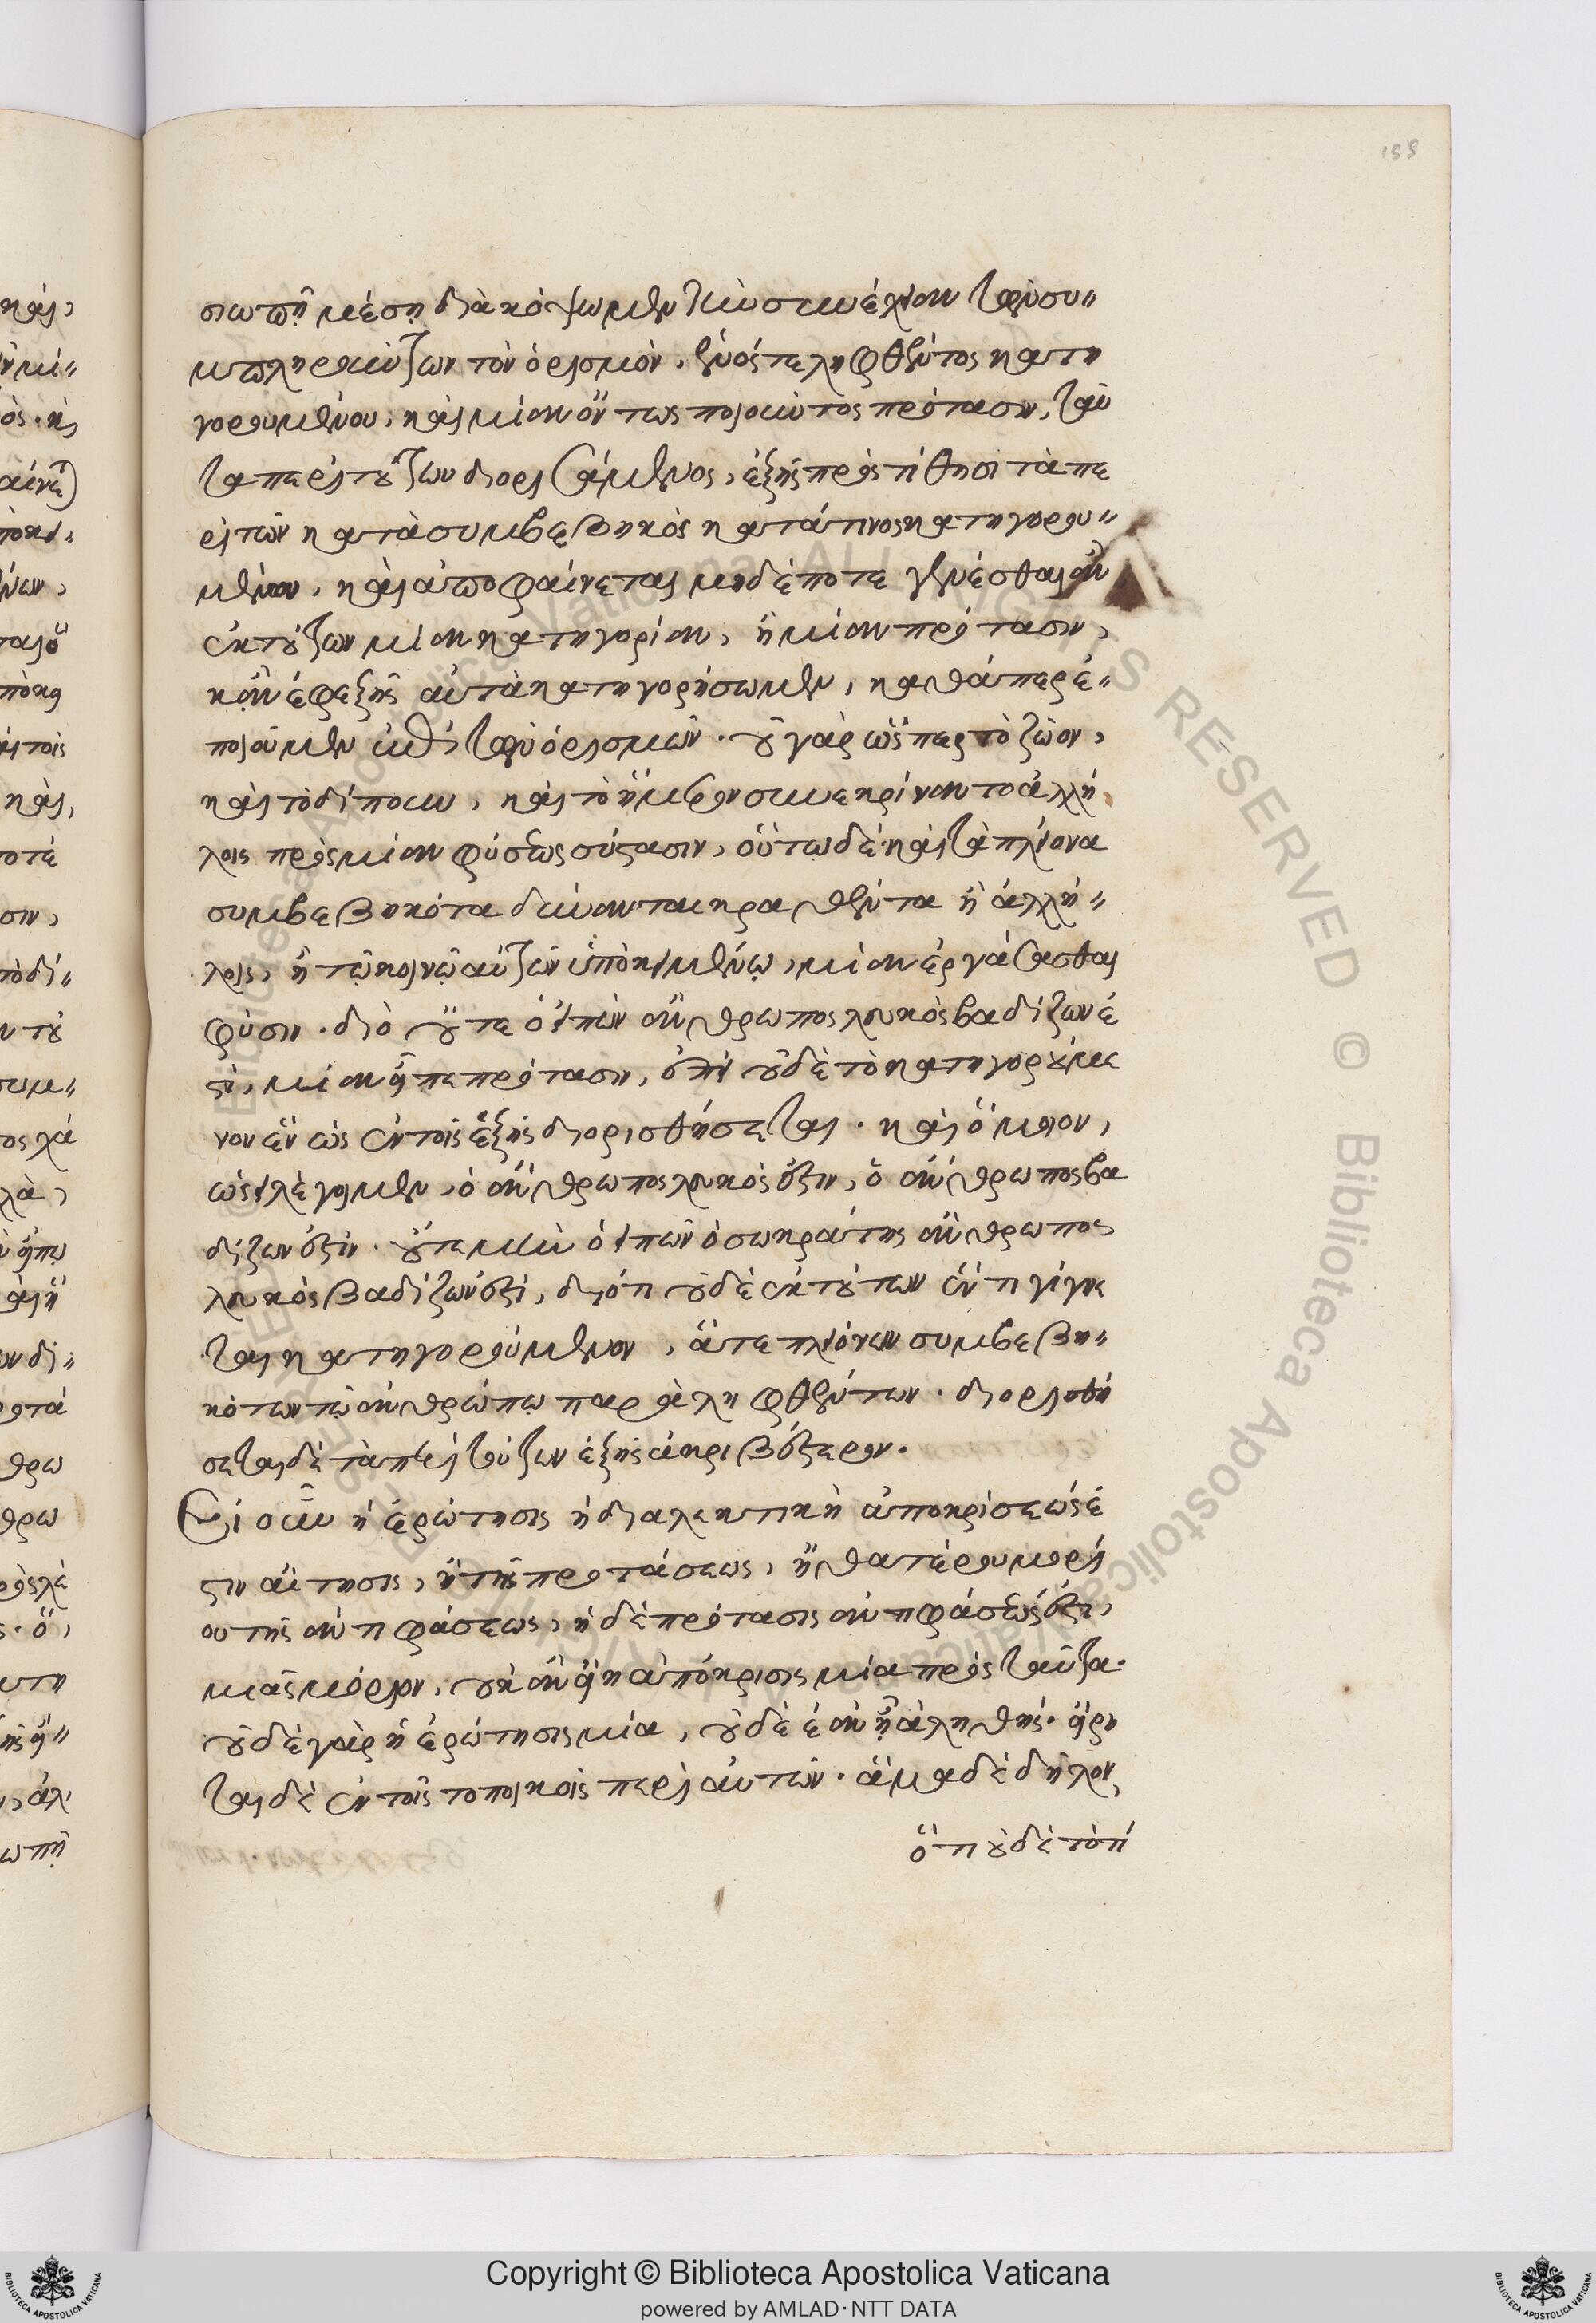 155
σιωπῇ μέσῃ διακόψωμεν τὴν συνέχειαν τῶν συ
μπληρούντων τὸν ὁρισμὸν, ἑνός τε ληφθέντος κατη
γορουμένου, καὶ μίαν ὄντως ποιοῦντος πρότασιν, ταῦ
τα περὶ τούτων διορισάμενος, ἑξῆς προστίθησι τὰ πε
ρὶ τῶν κατὰ συμβεβηκὸς κατά τινος κατηγορου
μένων, καὶ ἀποφαίνεται μηδέποτε γενέσθαι ἂν
ἐκ τούτων μίαν κατηγορίαν, ἢ μίαν πρότασιν,
κἂν ἐφεξῆς αὐτὰ κατηγορήσωμεν, καθάπερ ἐ
ποιοῦμεν ἐπὶ τῶν ὁρισμῶν. οὐ γὰρ ὥσπερ τὸ ζῶον,
καὶ τὸ δίπουν, καὶ τὸ ἥμερον συνεκρίναντο ἀλλή
λοις πρὸς μίαν φύσεως σύστασιν, οὕτω δὲ καὶ τὰ πλείονα
συμβεβηκότα δύνανται κραθέντα ἢ ἀλλή
λοις, ἢ τῷ κοινῷ αὐτῶν ὑποκειμένῳ, μίαν ἐργάσασθαι
φύσιν. διὸ οὔτε ὁ εἰπὼν ἄνθρωπος λευκὸς βαδίζων ἐ
στὶ, μίαν εἶπε πρότασιν, ἐπεὶ οὐδὲ τὸ κατηγορούμε
νον ἓν ὡς ἐν τοῖς ἑξῆς διορισθήσεται. καὶ ὅμοιον,
ὡς εἰ λέγοιμεν, ὁ ἄνθρωπος λευκός ἐστιν, ὁ ἄνθρωπος βα
δίζων ἐστίν. οὔτε μὴν ὁ εἰπὼν ὁ σωκράτης ἄνθρωπος
λευκὸς βαδίζων ἐστὶ, διότι οὐδὲ ἐκ τούτων ἕν τι γίγνε
ται κατηγορούμενον, ἅτε πλειόνων συμβεβη
κότων τῷ ἀνθρώπῳ παραληφθέντων. διορισθή
σεται δὲ τὰ περὶ τούτων ἑξῆς ἀκριβέστερον.
Εἰ οὖν ἡ ἐρώτησις ἡ διαλεκτικὴ ἀποκρίσεώς ἐ
στιν αἴτησις, ἢ τῆς προτάσεως, ἢ θατέρου μορί
ου τῆς ἀντιφάσεως, ἡ δὲ πρότασις ἀντιφάσεώς ἐστι,
μιᾶς μόριον, οὐκ ἂν εἴη ἀπόκρισις μία πρὸς ταῦτα.
οὐδὲ γὰρ ἡ ἐρώτησις μία, οὐδὲ ἐὰν ᾖ ἀληθής. εἴρη
ται δὲ ἐν τοῖς τοπικοῖς περὶ αὐτῶν. ἅμα δὲ δῆλον,
ὅτι οὐδὲ τὸ τί
Copyright © Biblioteca Apostolica Vaticana
powered by AMLAD·NTT DATA